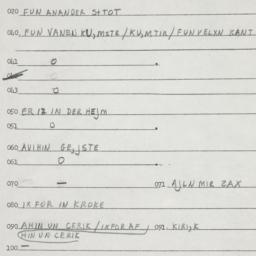 020 FUN ANANDER SHTOT
040 FUN VANEN KU,MSTR/KU,MTIR/FUN VELXN KANT
041 0 .
042
043 0
050 ER IZ IN DER HEJM
051 0 .
060 AVIHIN GE,JSTE
061 0 .
070 — 071. AJLN MIR ZAX
080 IKFOR IN KROKE
090 AHIN UN CERIK/IKFOR AF, 091. KIRIJK
HIN UN CERIK
100 —